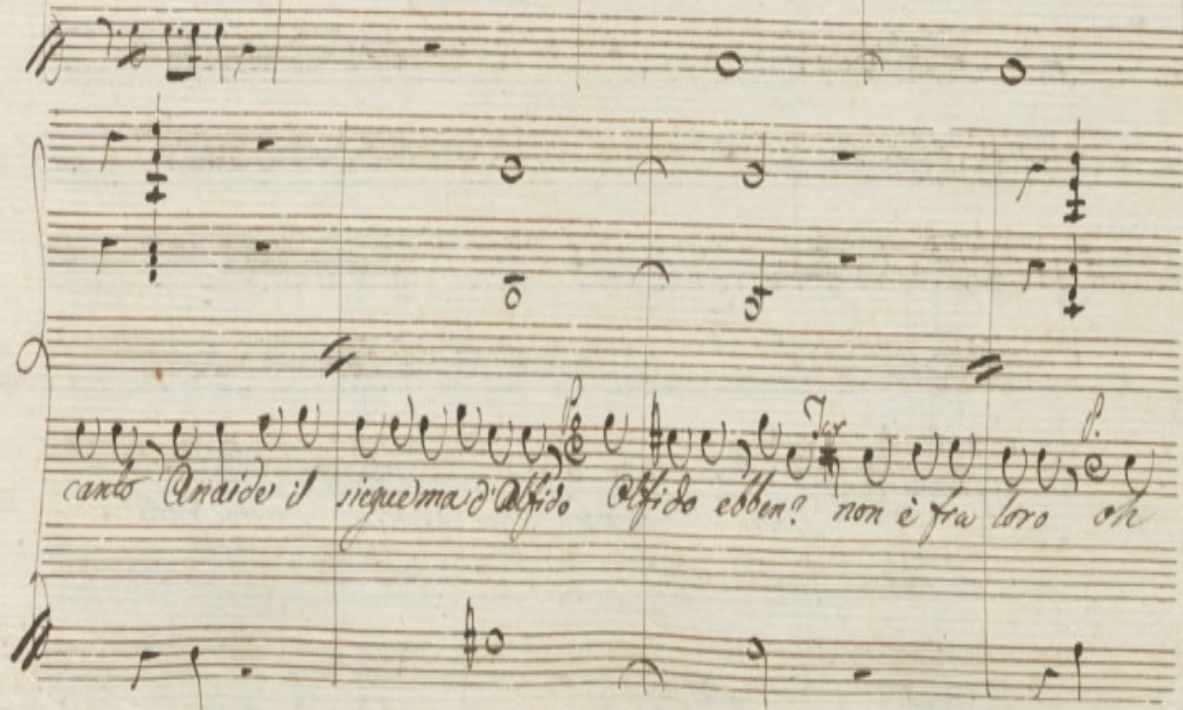 canto Anaide il siegue ma d'Alfido Alfido ebben? non è fra loro oh